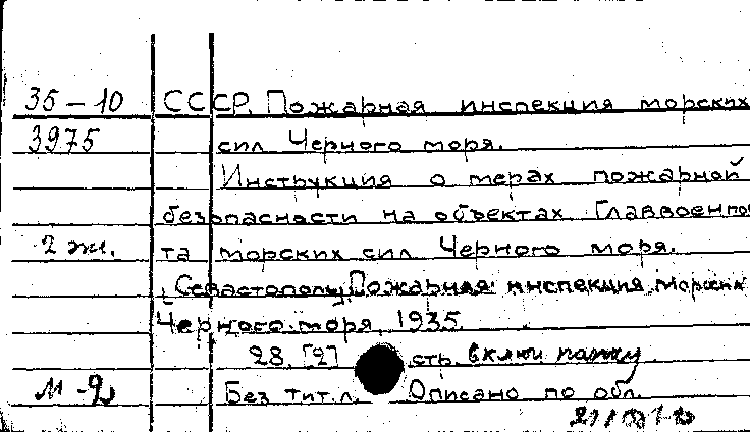 35-10 СССР. Пожарная инспекция морских
3975 сил Черного моря.
Инструкция о мерах пожарной
безопасности на объектах Главвоенпор
2 эк. та морских сил Черного моря.
[Севастополь], Пожарная инспекция морских
Черного моря, 1935.
28, [2] стр. включ папку
М-2 Без тит.л. Описано по обл.